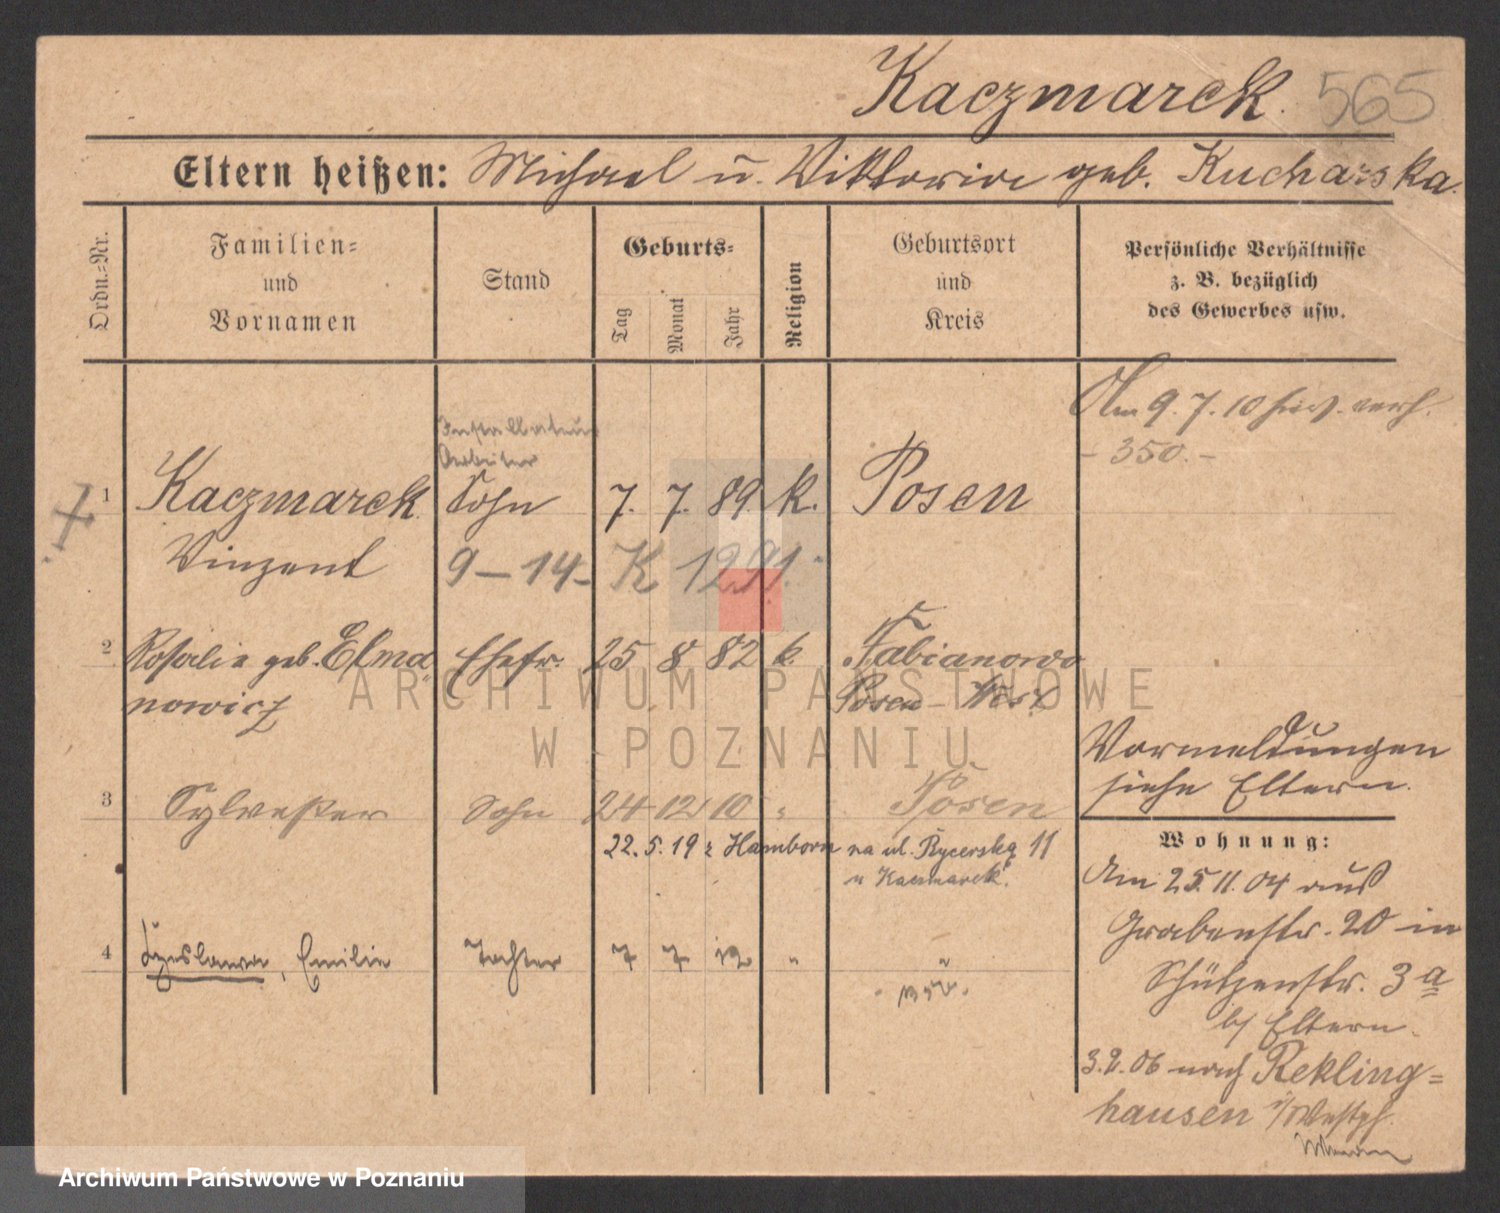 Kaczmarek. 565
Eltern heißen: Michael u. Viktoria geb. Kucharska.
Ordn.=Nr.
Familien=
und
Vornamen
Stand
Geburts=
Tag
Monat
Jahr
Religion
Geburtsort
und
Kreis
Persönliche Verhältnisse
z. B. bezüglich
des Gewerbes usw.
Am 9. 7. 10 verh.
- 350. -
Arbeiter
1 Kaczmarek Sohn 7. 7. 89. k. Posen
Vinzent 9-14- K 1291.
2 Rosalie geb. Elma Ehefr. 25 8 82 k. Fabianowo
nowicz Posen-West
Vormeldungen
siehe Eltern.
3 Sylvester Sohn 24 12 10 " Posen
22. 5. 19 z Hamborn na ul. Rycerską 11
u Kaczmarek.
Wohnung:
Am 25.11.04 aus
Grabenstr. 20 in
Schützenstr. 3 a
b/ Eltern.
3.2.06 nach Rekling=
hausen i/Westph.
4 Emilie Tochter 7 7 12 " "
ARCHIWUM PAŃSTWOWE
W POZNANIU
Archiwum Państwowe w Poznaniu